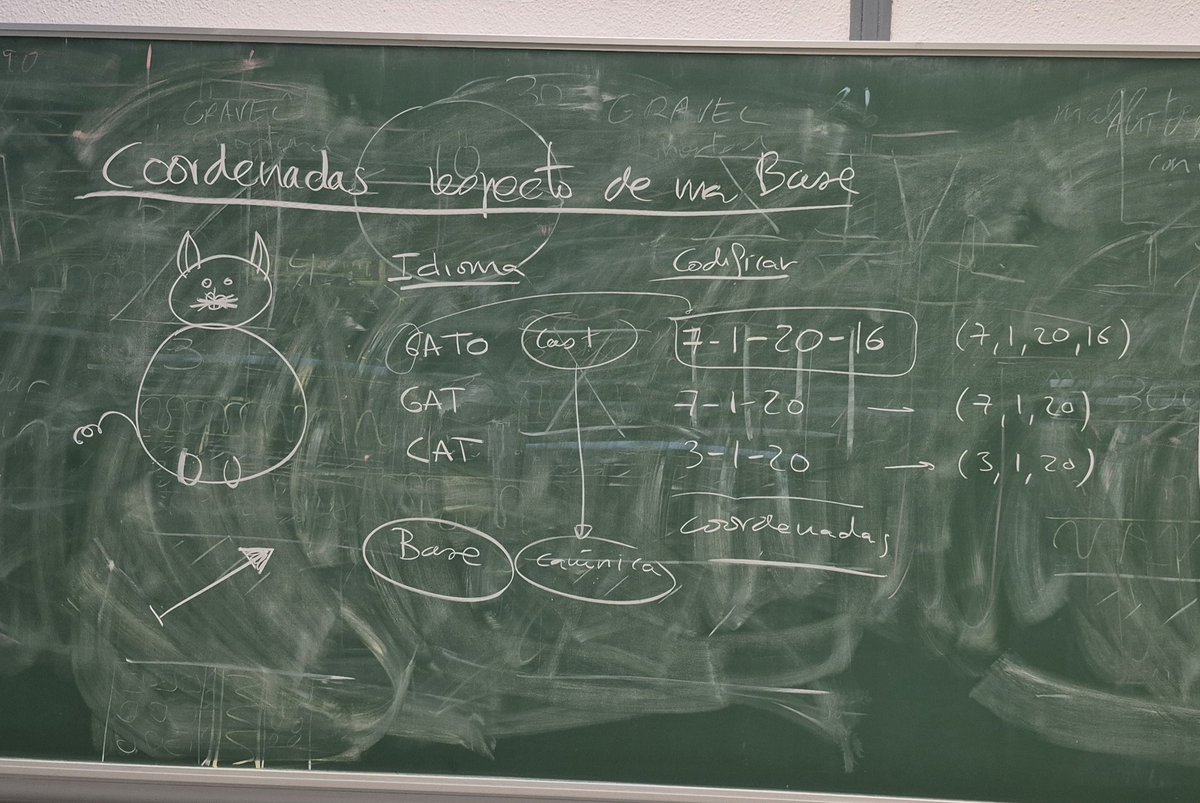 Coordenadas respecto de una Base
Idioma Codificar
GATO Cast 7-1-20-16 (7,1,20,16)
GAT 7-1-20 → (7,1,20)
CAT 3-1-20 → (3,1,20)
coordenadas
Base canónica
GRAVEL
GRAVEL